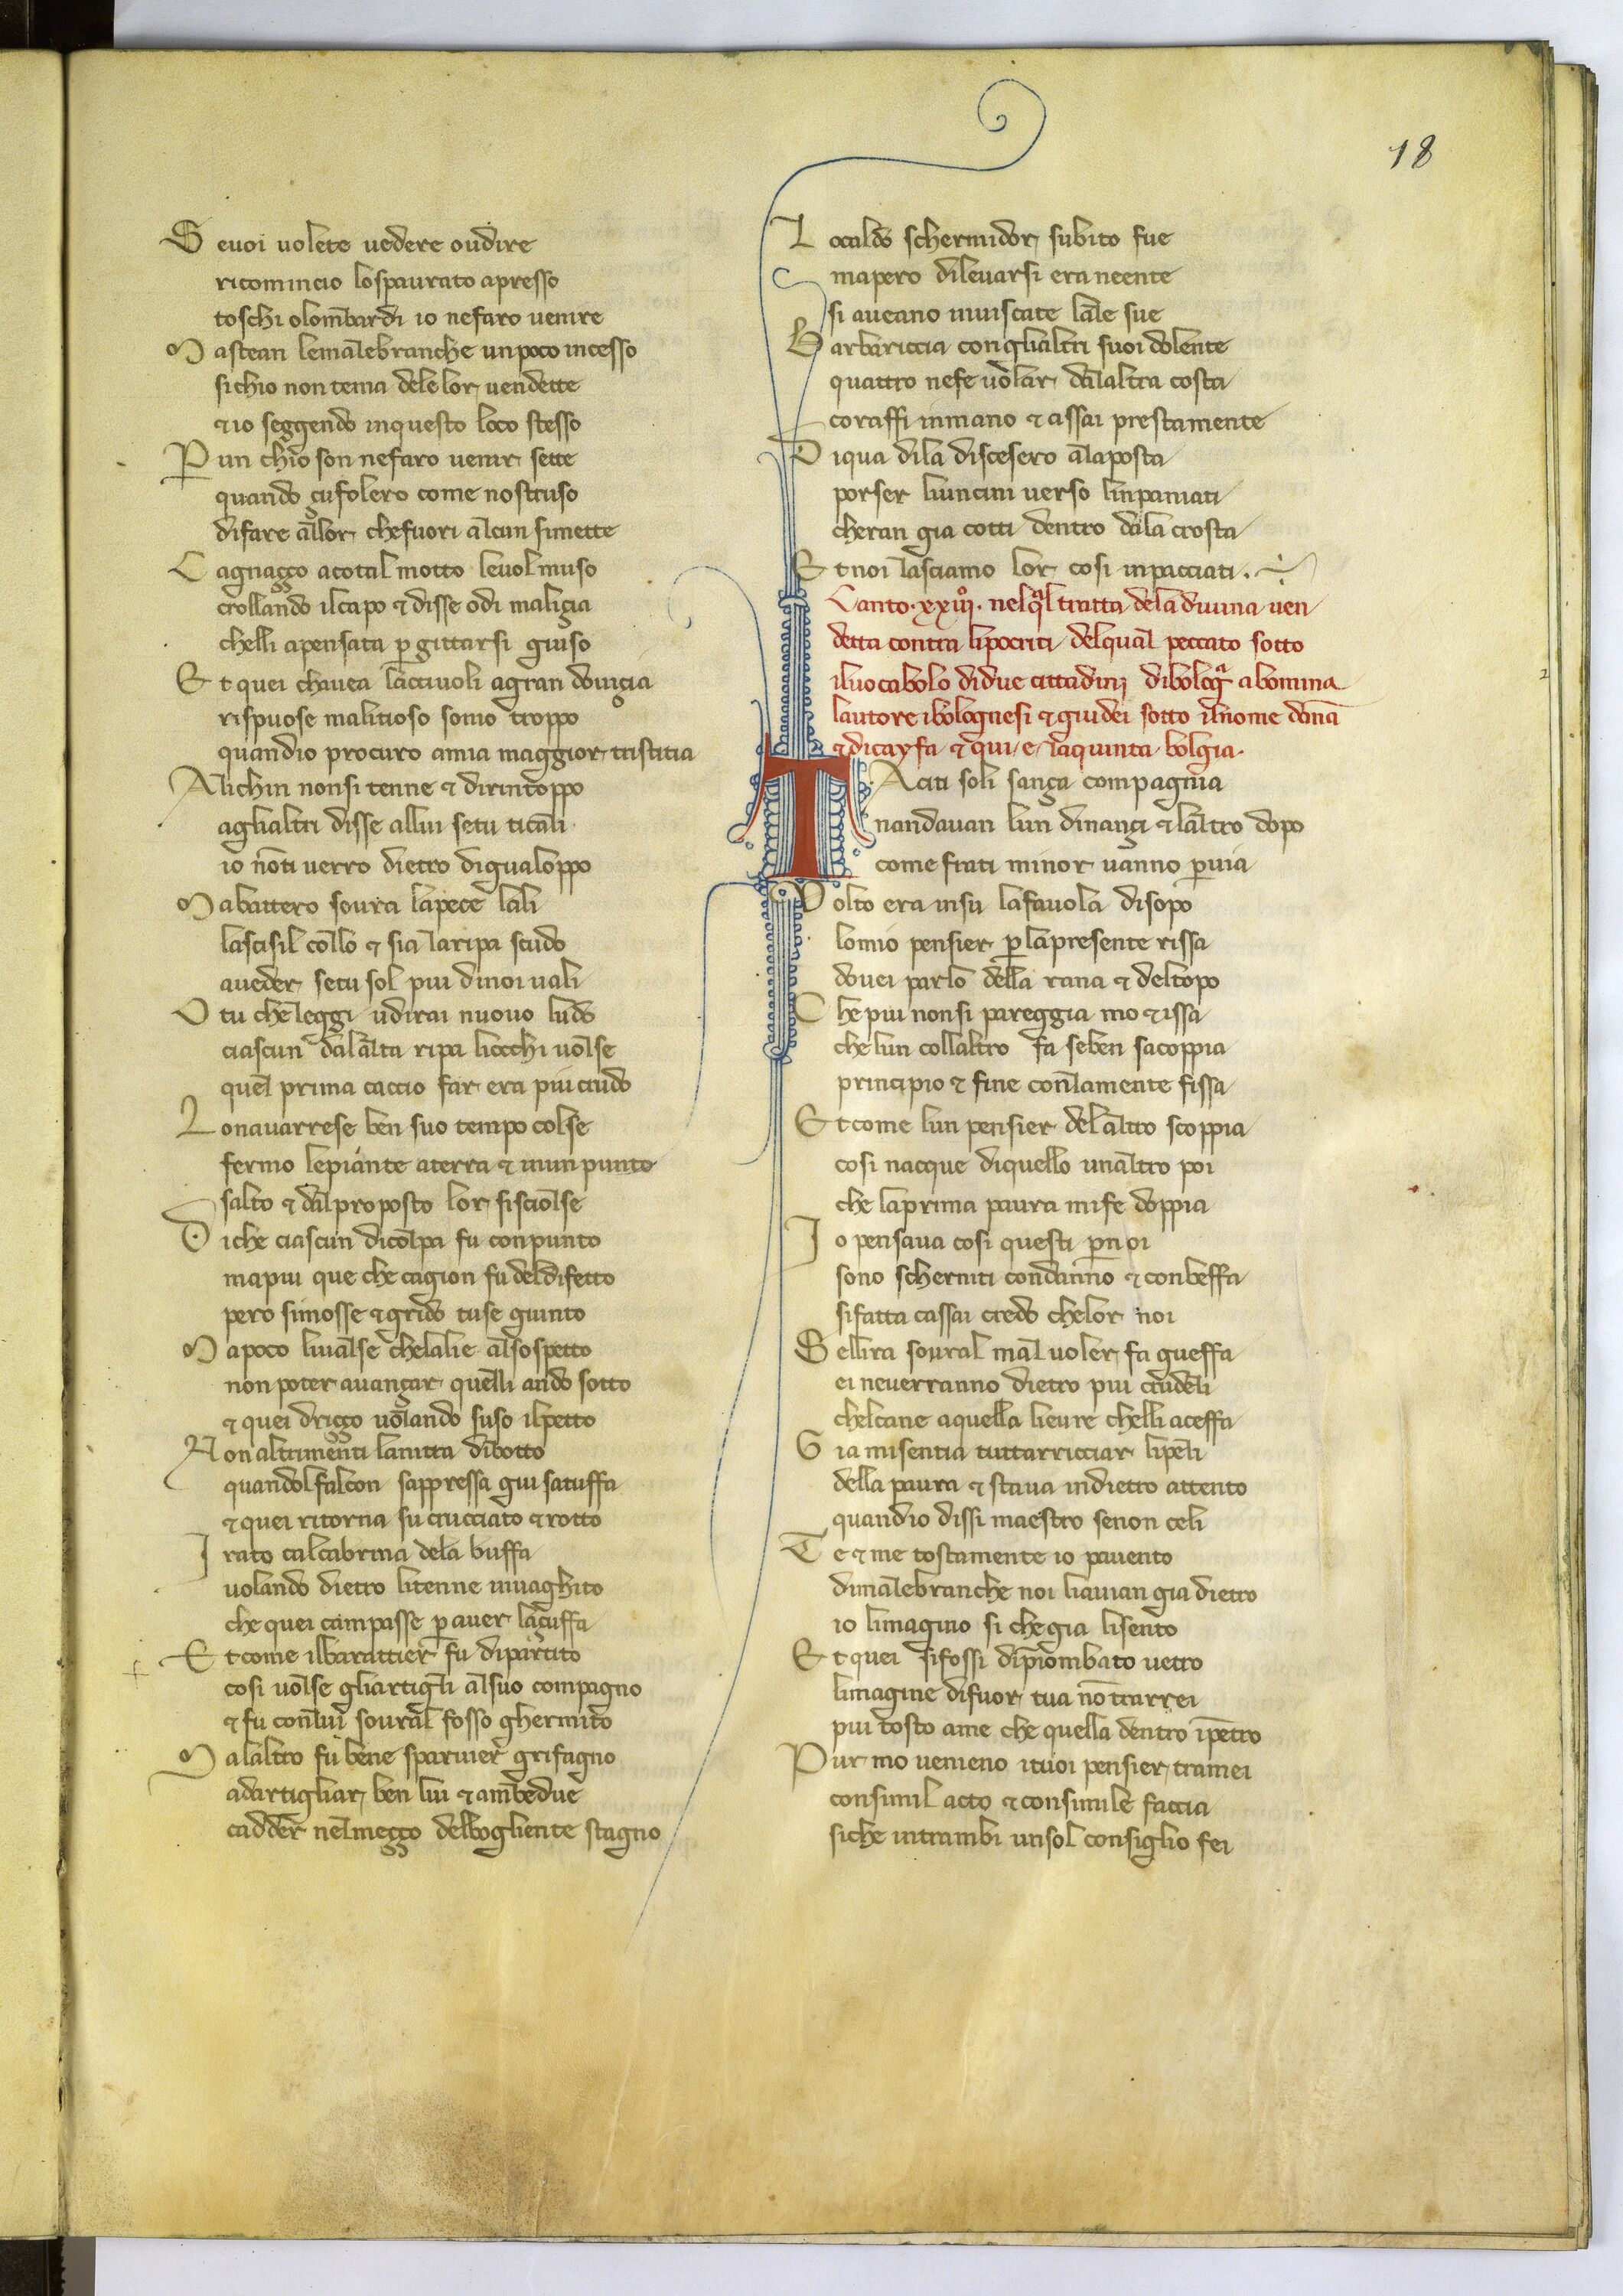 18
S evoi uolete uedere oudire
ricomincio lospaurato apresso
toschi olombardi io nefaro uenire
M astean lemalebranche unpoco incesso
sichio non tema delelor uendette
⁊ io seggendo inquesto loco stesso
P un chio son nefaro uenir sette
quando çufolero come nostruso
difare allor chefuori alcun simette
C agnaçço acotal motto leuol muso
crollando ilcapo ⁊ disse odi maliçia
chelli apensata p gittarsi giuso
E t quei chauea lacciuoli agran douiçia
rispuose malitioso sonio troppo
quandio procuro amia maggior tristitia
A lichin nonsi tenne ⁊ dirintoppo
aglialtri disse allui setu ticali
io nõti uerro dietro digualoppo
M abattero soura lapece lali
lascisil collo ⁊ sia laripa scudo
aueder setu sol piu dinoi uali
O tu che leggi udirai nuouo ludo
ciascun dalalta ripa liocchi uolse
quel prima caccio far era piu crudo
L onauarrese ben suo tempo colse
fermo lepiante aterra ⁊ inun punto
salto ⁊ dalproposto lor sisciolse
D iche ciascun dicolpa fu conpunto
mapiu que che cagion fu deldifetto
pero simosse ⁊ grido tuse giunto
M apoco liualse chelalie alsospetto
non poter auançar quelli ando sotto
⁊ quei driçço uolando suso ilpetto
N on altrimenti lanitra dibotto
quandolfalcon sappressa giu satuffa
⁊ quei ritorna su crucciato ⁊ rotto
I rato calcabrina dela buffa
uolando dietro litenne inuaghito
che quei campasse p auer laçuffa
E t come ilbarattier fu dipartito
cosi uolse gliartigli alsuo compagno
⁊ fu conlui soural fosso ghermito
M alaltro fu bene sparuier grifagno
adartigliar ben lui ⁊ ambedue
cadder nelmeçço delbogliente stagno
L ocaldo schermidor subito fue
mapero dileuarsi era neente
si aueano inuiscate lale sue
B arbariccia con glialtri suoi dolente
quattro nefe uolar dalaltra costa
coraffi inmano ⁊ assai prestamente
D iqua dila discesero alaposta
porser liuncini uerso linpaniati
cheran gia cotti dentro dala crosta
E t noi lasciamo lor cosi inpacciati.
Canto. xxiii. nelql tratta dela diuina uen
detta contra lipocriti delqual peccato sotto
iluocabolo didue cittadini diboloḡ abomina
lautore ibolognesi ⁊ giudei sotto ilnome danā
⁊ dicayfa ⁊ qui e laquinta bolgia.
T Aciti soli sança compagnia
nandauan lun dinançi ⁊ laltro dopo
come frati minor uanno p uia
V olto era insu lafauola disopo
lomio pensier p lapresente rissa
douei parlo della rana ⁊ deltopo
C he piu nonsi pareggia mo ⁊ issa
che lun collaltro fa seben sacoppia
principio ⁊ fine conlamente fissa
E t come lun pensier delaltro scoppia
cosi nacque diquello unaltro poi
che laprima paura mife doppia
I o pensaua cosi questi p noi
sono scherniti condanno ⁊ conbeffa
sifatta cassai credo chelor noi
S ellira soural mal uoler fa gueffa
ei neuerranno dietro piu crudeli
chelcane aquella lieure chelli aceffa
G ia misentia tuttarricciar lipeli
della paura ⁊ staua indietro attento
quandio dissi maestro senon celi
T e ⁊ me tostamente io pauento
dimalebranche noi liauian gia dietro
io limagino si chegia lisento
E t quei sifossi dipiombato uetro
limagine difuor tua nõ trarrei
piu tosto ame che quella dentro ipetro
P ur mo uenieno ituoi pensier tramei
consimil acto ⁊ consimile faccia
siche intrambi unsol consiglio fei